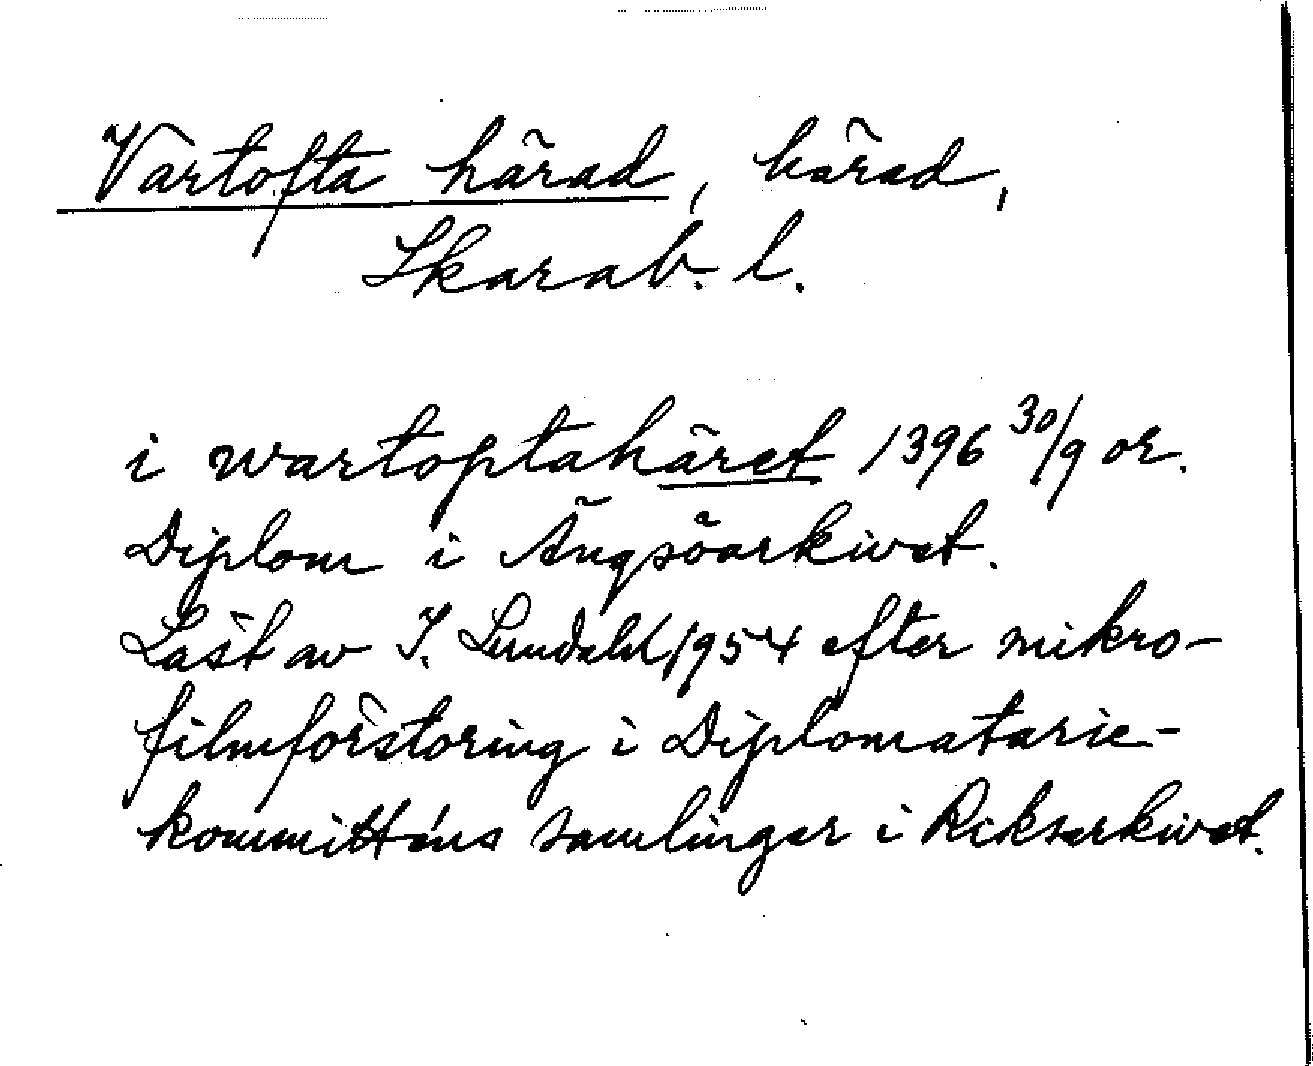 Vartofta härad, härad,
Skarab. l.
i wartoptahäret 1396 30/9 or.
Diplom i Ängsöarkivet.
Läst av I. Lundahl 1954 efter mikro-
filmförstoring i Diplomatarie-
kommitténs samlingar i Riksarkivet.